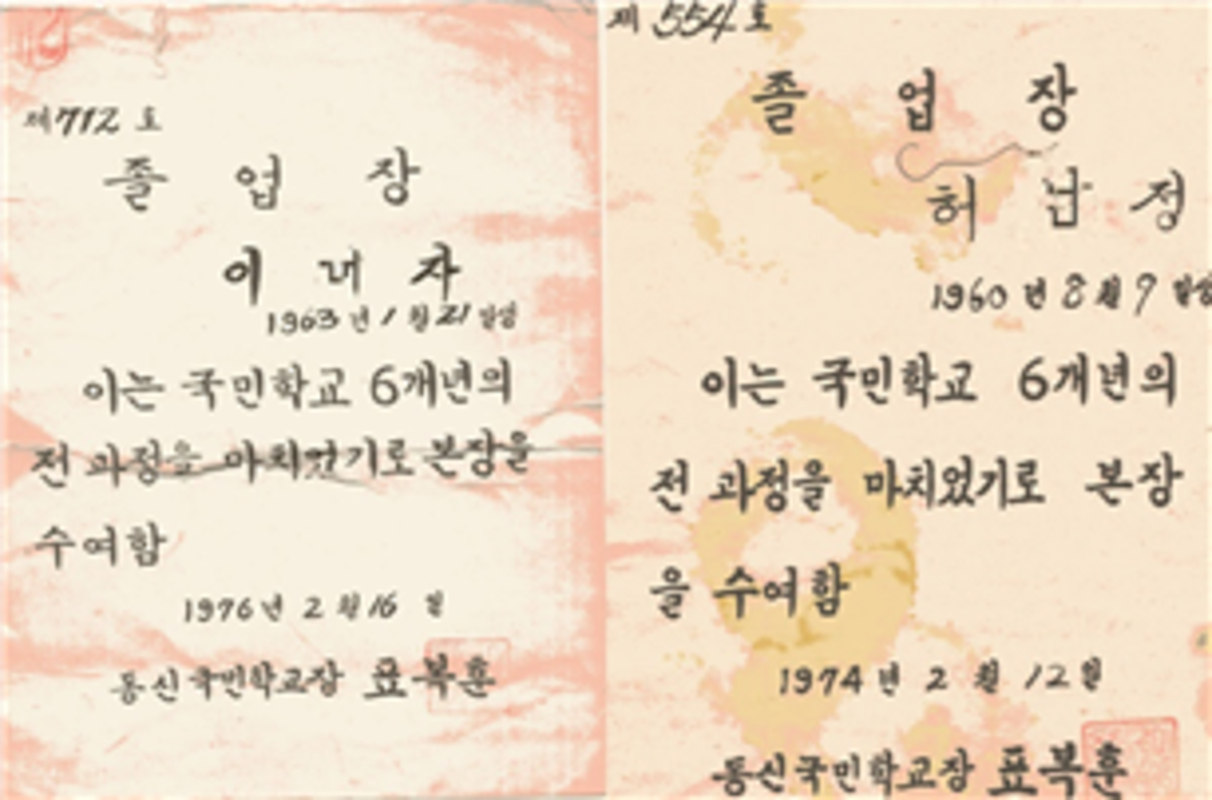 제 712 호
졸 업 장
이 내 자
1963년 1월 21일생
이는 국민학교 6개년의
전 과정을 마치었기로 본장을
수여함
1976년 2월 16일
동신국민학교장 표복훈
제 554 호
졸 업 장
허 남 정
1960년 8월 9일생
이는 국민학교 6개년의
전 과정을 마치었기로 본장
을 수여함
1974년 2월 12일
동신국민학교장 표복훈